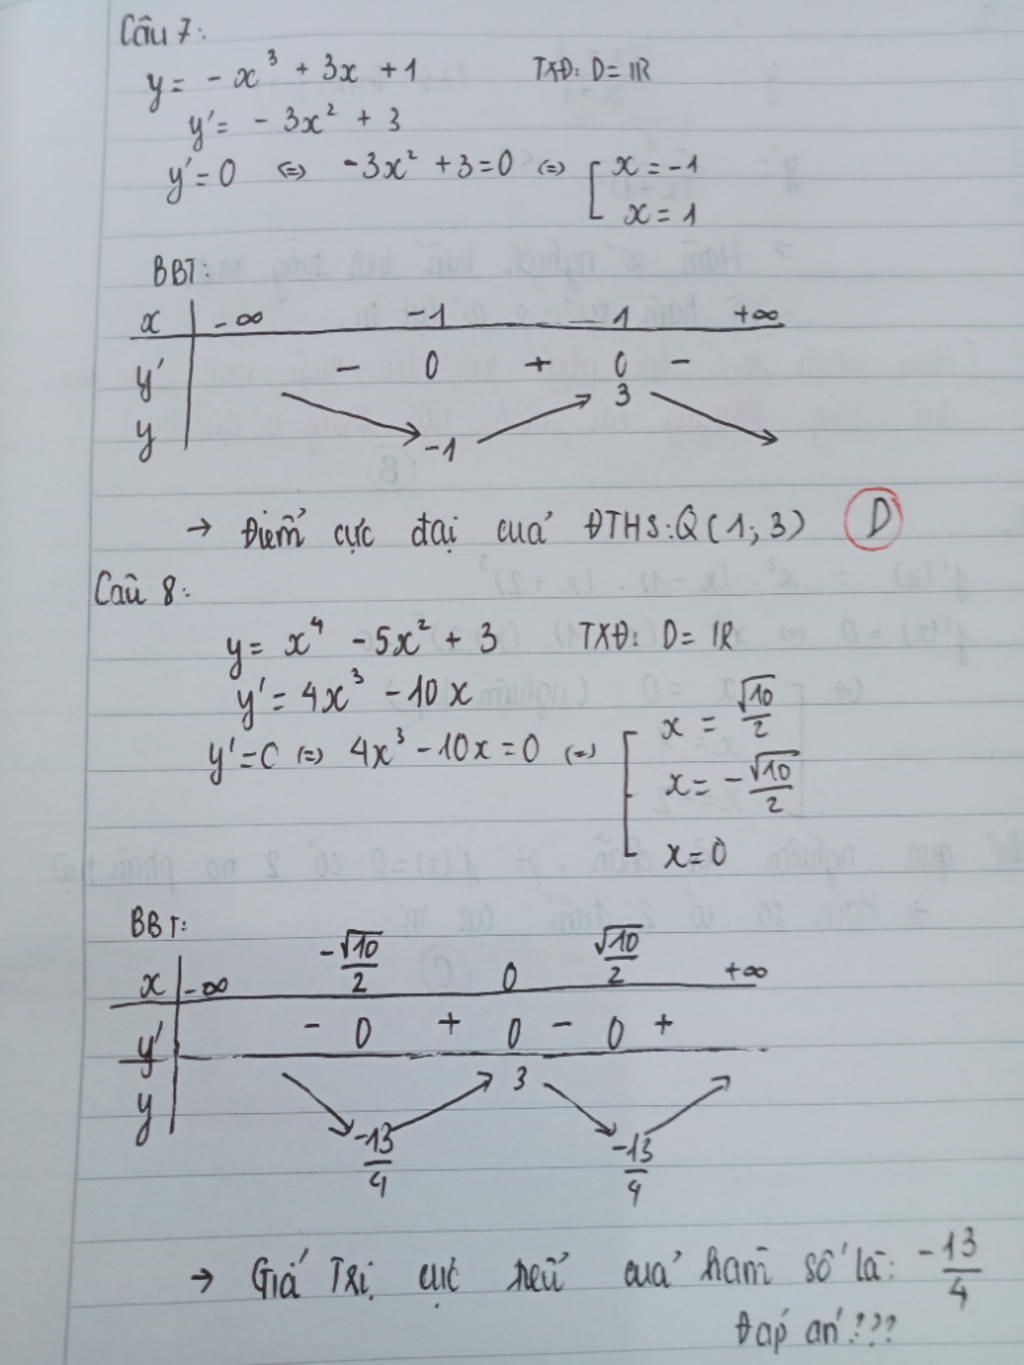 Câu 7:
y = - x³ + 3x + 1 TXĐ: D = IR
y' = - 3x² + 3
y' = 0 (=) -3x² + 3 = 0 (=) [ x = -1
x = 1
BBT:
x -∞ -1 1 +∞
y' - 0 + 0 -
3
y -1
→ Điểm cực đại của ĐTHS: Q (1; 3) D
Câu 8:
y = x⁴ - 5x² + 3 TXĐ: D = IR
y' = 4x³ - 10x
y' = 0 (=) 4x³ - 10x = 0 (=) [ x = √10/2
x = -√10/2
x = 0
BBT:
x -∞ -√10/2 0 √10/2 +∞
y' - 0 + 0 - 0 +
y 3
-13/4 -13/4
→ Giá Trị cực tiểu của hàm số là: -13/4
Đáp án???